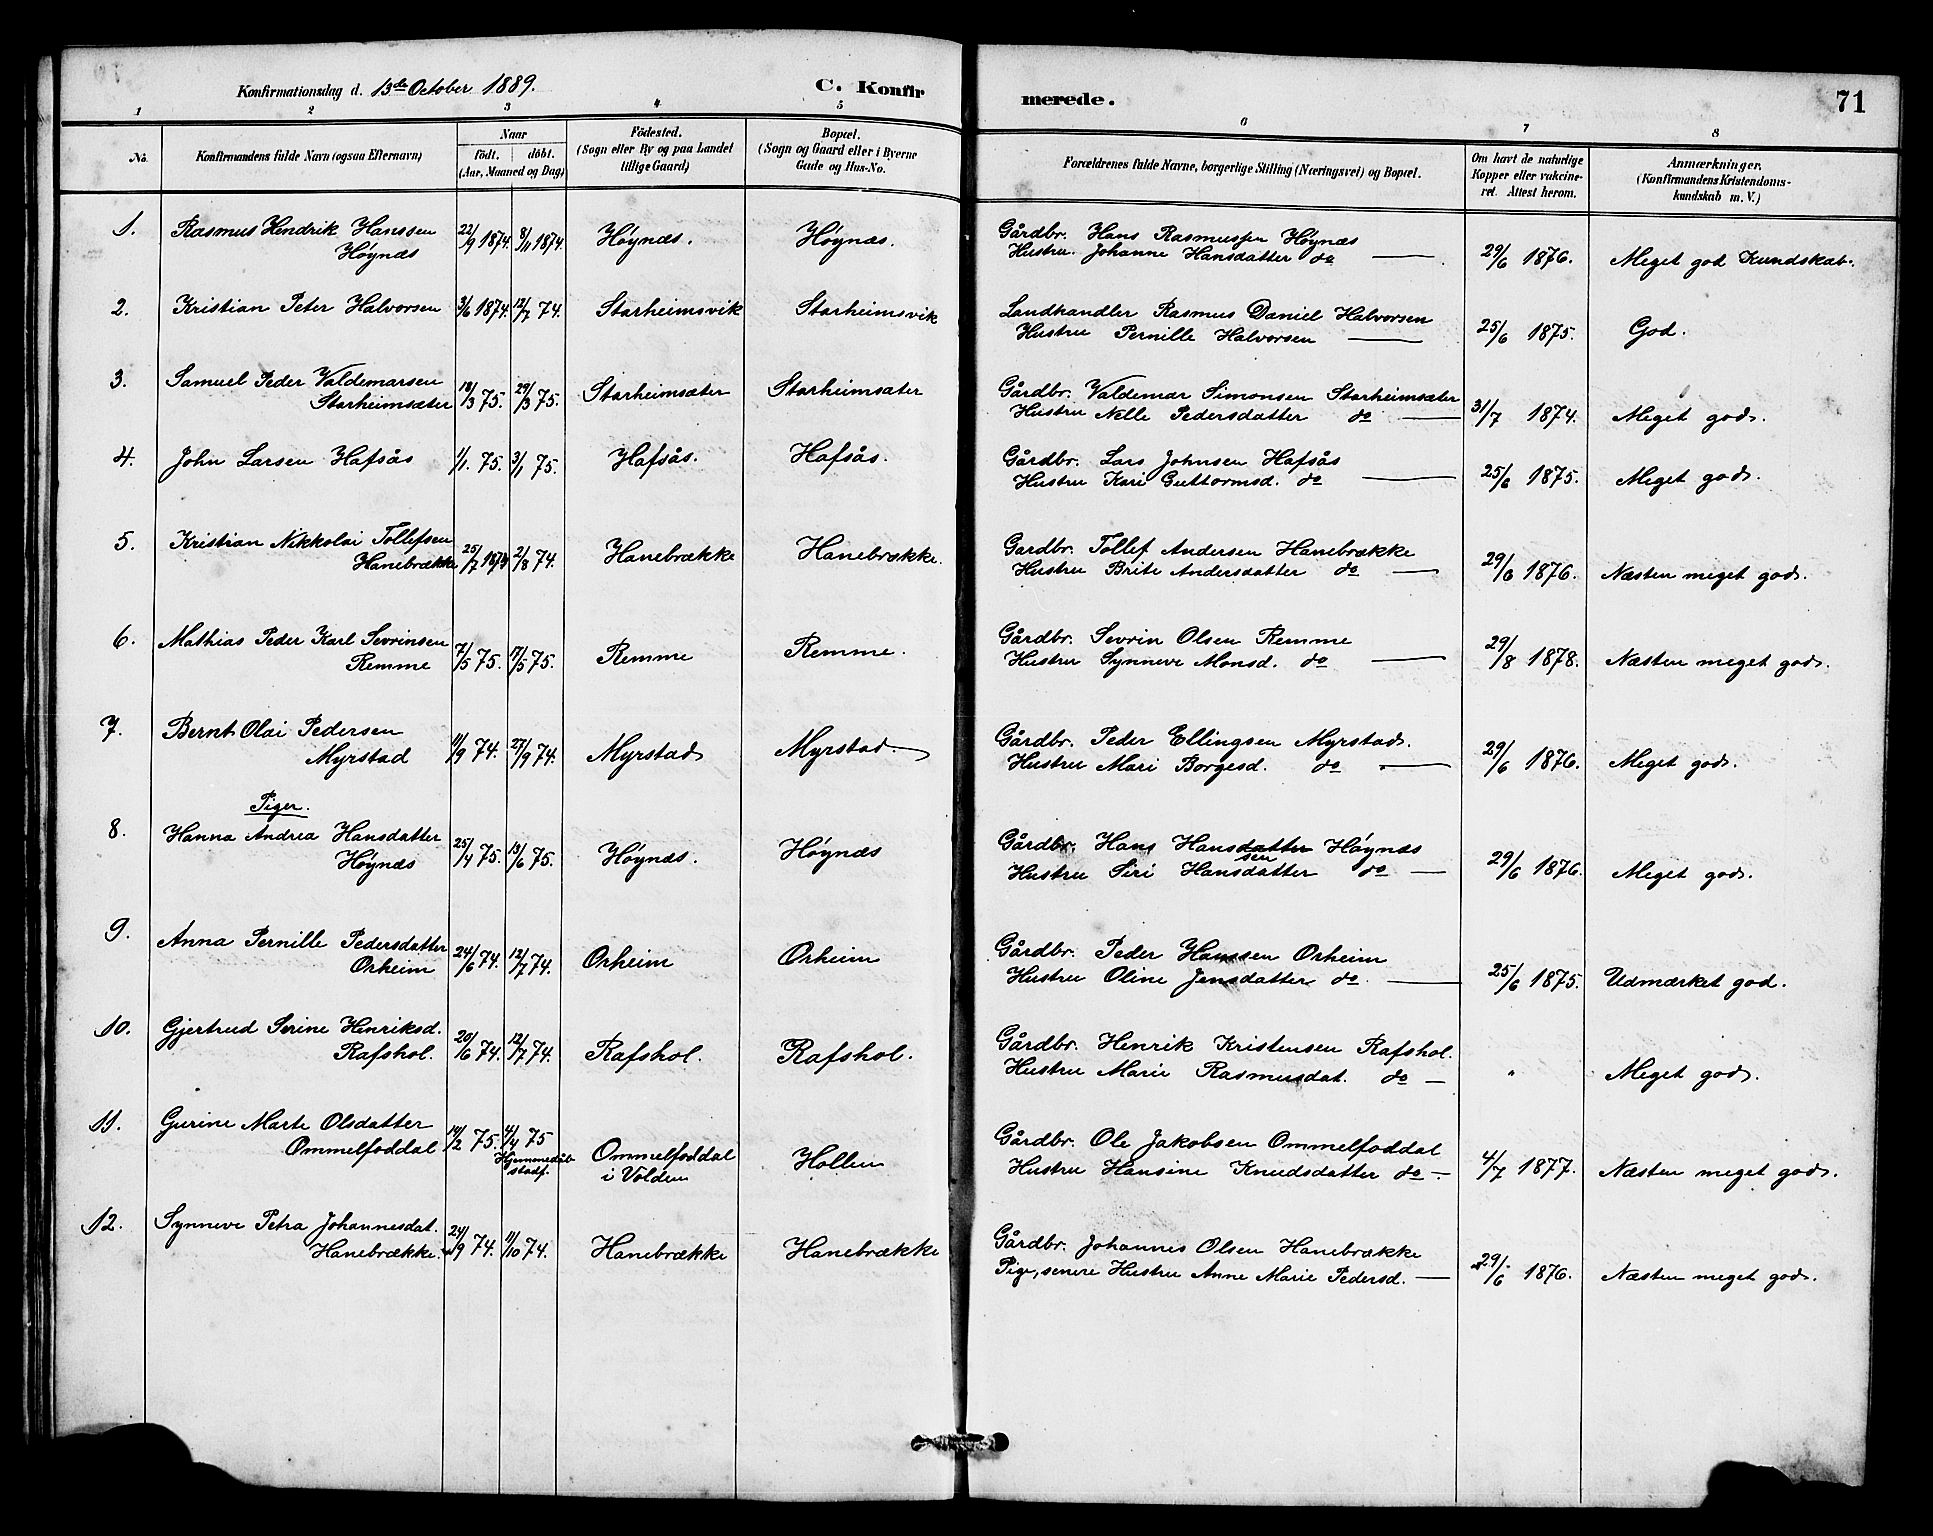 Konfirmationsdag d. 13de October 1889.
C. Konfirmerede.
71
1 2 3 4 5 6 7 8
No. Konfirmandens fulde Navn (ogsaa Efternavn)
Naar
födt. döbt.
(Aar, Maaned og Dag)
Födested.
(Sogn eller By og paa Landet
tillige Gaard)
Bopæl.
(Sogn og Gaard eller i Byerne
Gade og Hus-No.
Forældrenes fulde Navne, borgerlige Stilling (Næringsvei) og Bopæl.
Om havt de naturlige
Kopper eller vakcine-
ret. Attest herom.
Anmærkninger.
(Konfirmandens Kristendoms-
kundskab m. V.)
1. Rasmus Hendrik Hanssen 22/9 1874. 8/11 1874. Høynæs. Høynæs. Gårdbr. Hans Rasmussen Høynæs
Høynæs Hustru Johanne Hansdatter do — 29/6 1876. Meget god Kundskab.
2. Kristian Peter Halvorsen 3/6 1874. 12/7 74. Starheimsvik Starheimsvik Landhandler Rasmus Daniel Halvorsen
Hustru Pernille Halvorsen — 25/6 1875. God.
3. Samuel Peder Valdemarsen 18/3 75. 29/3 75. Starheimsæter Starheimsæter Gårdbr. Valdemar Simonsen Starheimsæter
Starheimsæter Hustru Nelle Pedersdatter do — 31/7 1874. Meget god.
4. John Larsen Hafsås 1/1. 75. 3/1 75. Hafsås. Hafsås. Gårdbr. Lars Johnsen Hafsås
Hustru Kari Guttormsd. do — 25/6 1875. Meget god.
5. Kristian Nikkolai Tollefsen 25/7 1874 2/8 74. Hanebrække Hanebrække. Gardbr. Tollef Andersen Hanebrække
Hanebrække Hustru Brite Andersdatter do — 29/6 1876. Næsten meget god.
6. Mathias Peder Karl Sevrinsen 7/5 75. 17/5 75. Remme Remme. Gårdbr. Sevrin Olsen Remme
Remme Hustru Synneve Monsd. do — 29/8 1878. Næsten meget god.
7. Bernt Olai Pedersen 11/9 74. 27/9 74. Myrstad Myrstad Gårdbr. Peder Ellingsen Myrstad.
Myrstad Hustru Mari Borgesd. do — 29/6 1876. Meget god.
Piger.
8. Hanna Andrea Hansdatter 25/4 75. 13/6 75. Høynæs. Høynæs Gårdbr. Hans Hansdatter Høynæs
sen
Høynæs Hustru Siri Hansdatter do — 29/6 1876. Meget god.
9. Anna Pernille Pedersdatter 24/6 74. 12/7 74. Orheim Orheim Gårdbr. Peder Hanssen Orheim
Orheim Hustru Oline Jensdatter do. — 25/6 1875. Udmærket god.
10. Gjertrud Serine Henriksd. 20/6 74. 12/7 74. Rafshol. Rafshol. Gårdbr. Henrik Kristensen Rafshol.
Rafshol. Hustru Marie Rasmusdat. do — " Meget god.
11. Gurine Marte Olsdatter 14/2 75. 4/4 75 Ommelfoddal Hollen Gårdbr. Ole Jakobsen Ommelfoddal
Ommelfoddal Hjemmedåb
stadf. i Volden Hustru Hansine Knudsdatter do —. 4/7 1877. Næsten meget god.
12. Synneve Petra Johannesdat. 24/9 74. 11/10 74. Hanebrække Hanebrække Gårdbr. Johannes Olsen Hanebrække
Hanebrække. Pige, senere Hustru Anne Marie Pedersd. — 29/6 1876. Næsten meget god.